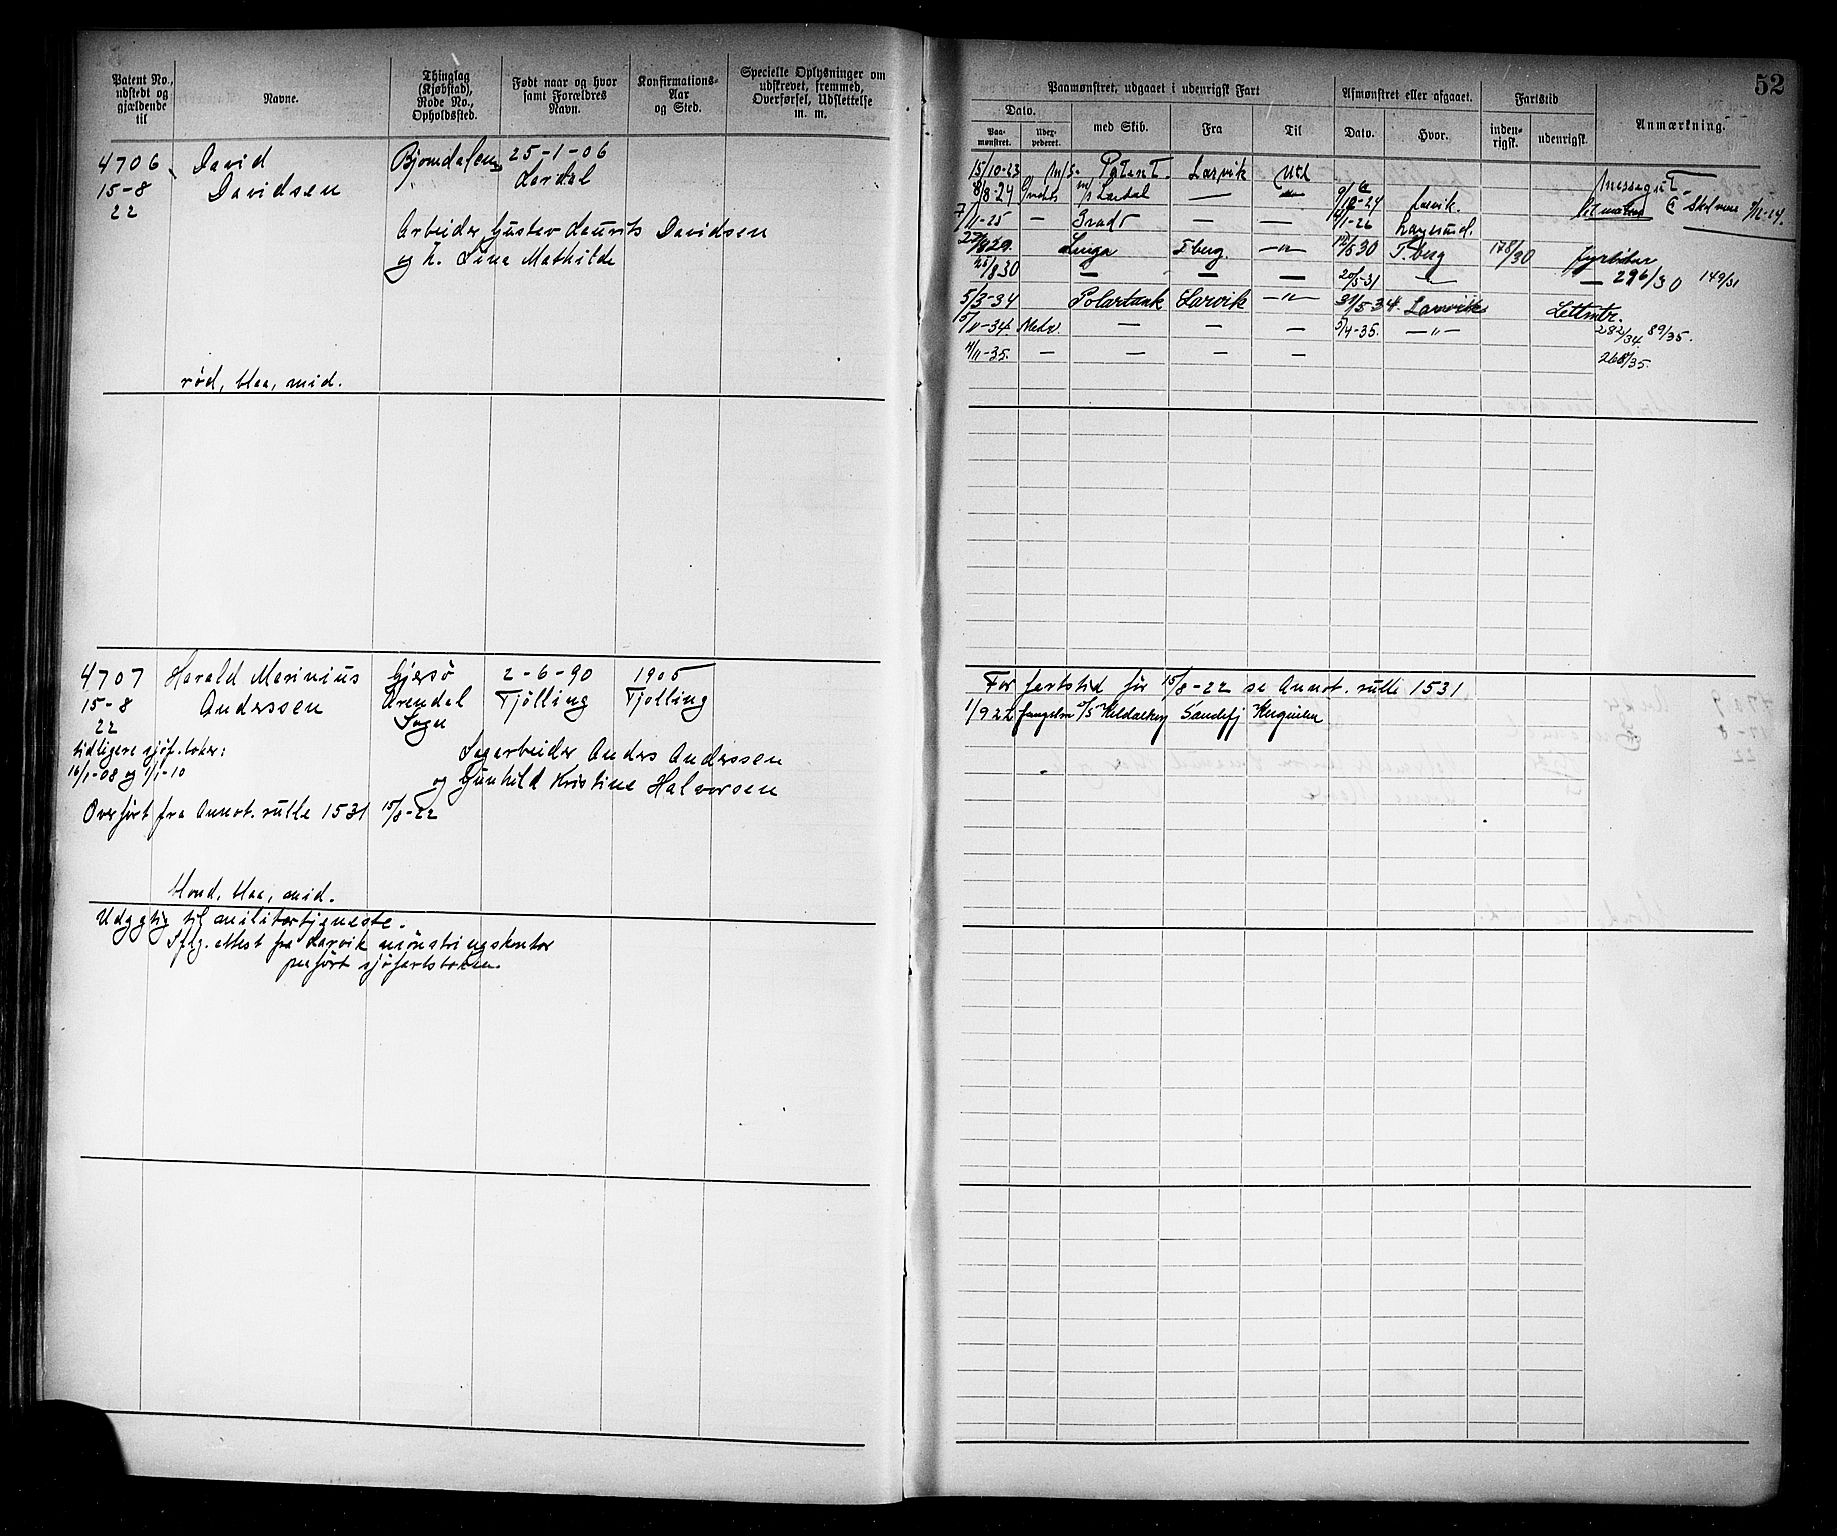 Patent No., udstedt og gjældende til
Navne.
Thinglag (Kjøbstad), Rode No., Opholdssted.
Født naar og hvor samt Forældres Navn.
Konfirmations- Aar og Sted.
Specielle Oplysninger om udskrevet, fremmed, Overførsel, Udslettelse m. m.
4706 David Bjorndalen 25-1-06
15-8 Davidsen Lardal
22
Arbeider Gustav Laurits Davidsen
og h. Lina Mathilde
rød, blaa, mid.
4707 Harald Marinius Gjersø 2-6-90 1905
15-8 Anderssen Arendal Tjølling Tjølling
22 Sogn
tidligere sjøf. bøker:
16/1-08 og 1/1-10
Sagarbeider Anders Anderssen
og Gunhild Kristine Halvorsen
Overført fra Annot. rulle 1531 15/8-22
blond, blaa, mid.
Udygtig til militærtjeneste.
Iflg. attest fra Larvik mønstringskontor
paaført sjøfartsboken.
52
Paamønstret, udgaaet i udenrigsk Fart
Afmønstret eller afgaaet.
Fartstid
Anmærkning.
Dato.
Paa- mønstret.
med Skib.
Fra
Til
Dato.
Hvor.
inden- rigsk.
udenrigsk.
15/10-23 M/S. Patent. Larvik Utl Messegut
8/8-24 Lardal — 9/12-24 Larvik.
7/11-25 — — — 1-26 Langesund.
29. Luga T.berg —"— 8 30 T.berg 178/30 fyrbøter
25/8 30 — — — 20/5-31 — — 296/30 149/31
5/3-34 Polartank Larvik —"— 31/5-34. Larvik Lettmtr.
5/11-34 — — — 5/4-35. —"— 282/34. 89/35.
11/11-35. — — — — 268/35.
For fartstid før 15/8-22 se Annot. rulle 1531
1/9 22 Sandefj Kerguelen